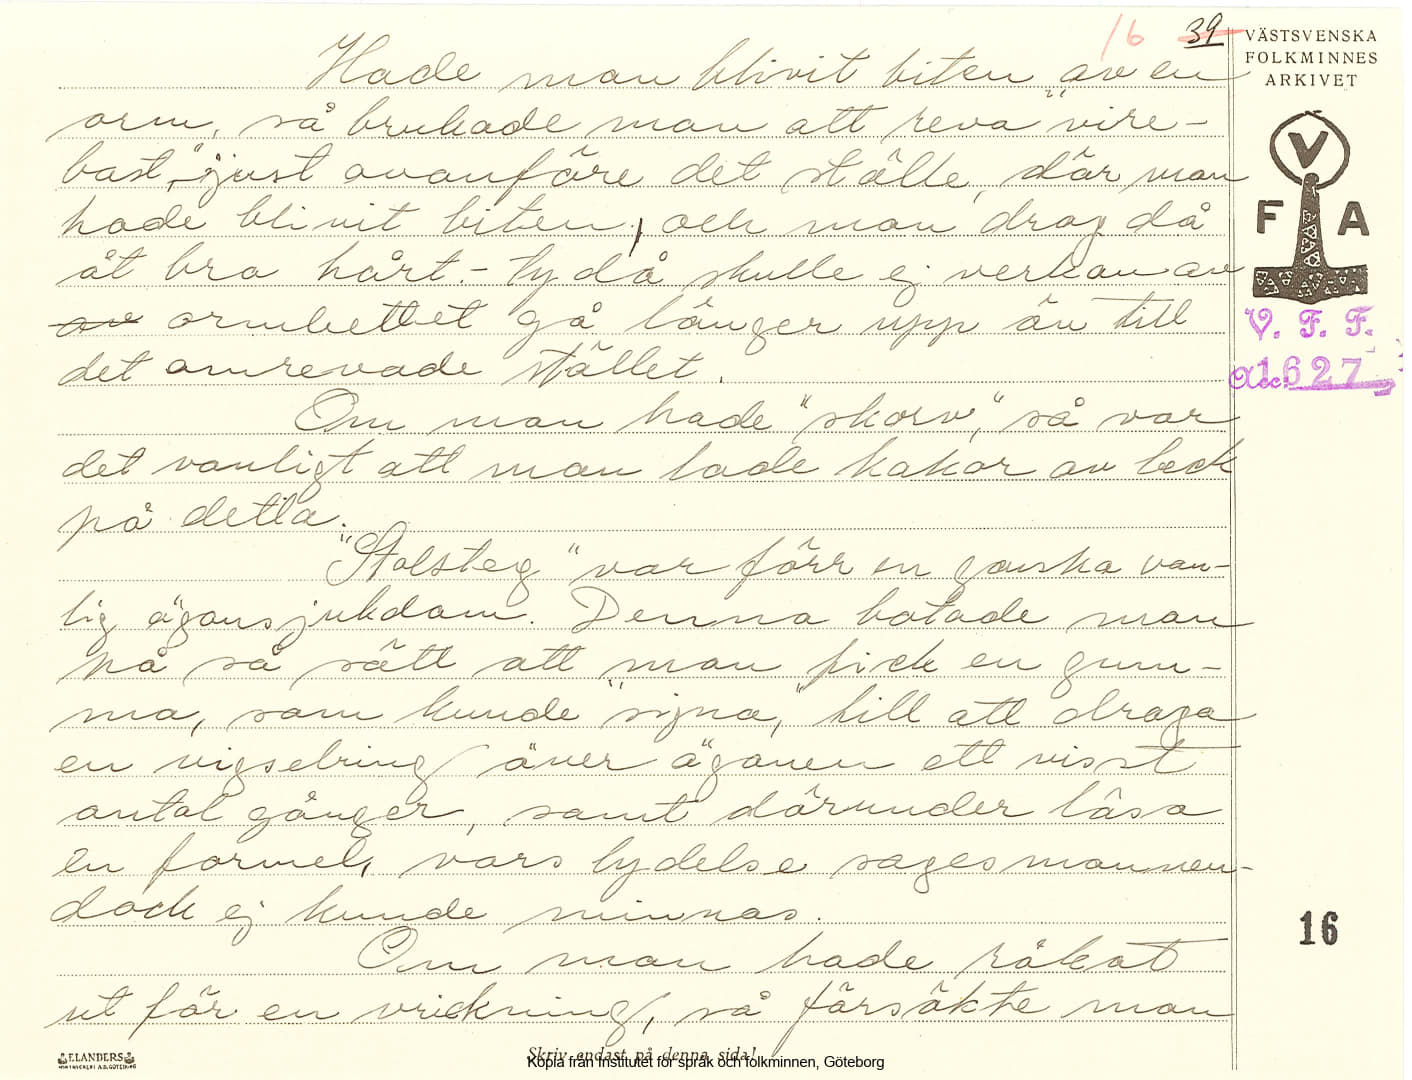 16 39
VÄSTSVENSKA
FOLKMINNES
ARKIVET
Hade man blivit biten av en
orm, så brukade man att reva "vire-
bast," just ovanföre det ställe, där man
hade blivit biten, och man drog då
åt bra hårt. - Ty då skulle ej verkan av
av ormbettet gå länger upp än till
det omrevade stället.
Om man hade "skorv," så var
det vanligt att man lade kakor av beck
på detta.
"Stolsteg" var förr en ganska van-
lig ögonsjukdom. Denna botade man
på så sätt att man fick en gum-
ma, som kunde "signa," till att draga
en vigselring över ögonen ett visst
antal gånger, samt därunder läsa
en formel, vars lydelse sagesmannen
dock ej kunde minnas.
Om man hade råkat
ut för en vrickning, så försökte man
V
F A
V. F. F.
Acc. 1627
16
F. LANDERS
Skriv endast på denna sida!
Kopia från Institutet för språk och folkminnen, Göteborg